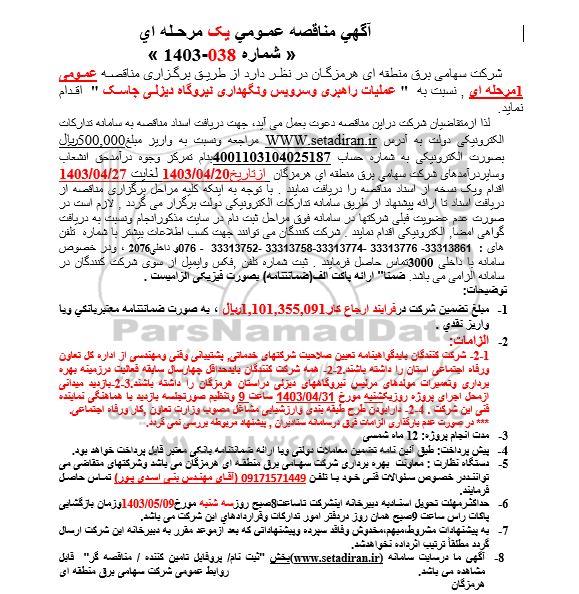 آگهي مناقصه عمومي يک مرحله اي
« شماره 038-1403 »
شرکت سهامی برق منطقه ای هرمزگان در نظر دارد از طریق برگزاری مناقصه عمومی
1مرحله ای , نسبت به " عملیات راهبری وسرویس ونگهداری نیروگاه دیزلی جاسک " اقدام
نماید.
لذا ازمتقاضیان شرکت دراین مناقصه دعوت بعمل می آید، جهت دریافت اسناد مناقصه به سامانه تدارکات
الکترونیکی دولت به آدرس www.setadiran.ir مراجعه ونسبت به واریز مبلغ500,000ریال
بصورت الکترونیکی به شماره حساب 4001103104025187بنام تمرکز وجوه درآمدحق انشعاب
وسایردرآمدهای شرکت سهامی برق منطقه ای هرمزگان ازتاریخ1403/04/20 لغایت 1403/04/27
اقدام ویک نسخه از اسناد مناقصه را دریافت نمایند . با توجه به اینکه کلیه مراحل برگزاری مناقصه از
دریافت اسناد تا ارائه پیشنهاد از طریق سامانه تدارکات الکترونیکی دولت برگزار می گردد , لازم است در
صورت عدم عضویت قبلی شرکتها در سامانه فوق مراحل ثبت نام در سایت مذکورانجام ونسبت به دریافت
گواهی امضا, الکترونیکی اقدام نمایند. شرکت کنندگان می توانند جهت کسب اطلاعات بیشتر با شماره تلفن
های : 33313861- 33313776 -33313774-33313758 -33313752 -076و داخلی2076 ، ودر خصوص
سامانه با داخلی 3000تماس حاصل فرمایند . ثبت شماره تلفن ,فکس وایمیل از سوی شرکت کنندگان در
سامانه الزامی می باشد. ضمنا" ارائه پاکت الف(ضمانتنامه) بصورت فیزیکی الزامیست .
توضیحات:
1- مبلغ تضمین شرکت درفرایند ارجاع کار1,101,355,091ریال ، به صورت ضمانتنامه معتبربانکی ویا
واریز نقدی .
2- الزامات:
2-1- شرکت کنندگان بایدگواهینامه تعیین صلاحیت شرکتهای خدماتی, پشتیبانی وفنی ومهندسی از اداره کل تعاون
ورفاه اجتماعی استان را داشته باشند.2-2- همه شرکت کنندگان بایدحداقل چهارسال سابقه فعالیت درزمینه بهره
برداری وتعمیرات مولدهای مرلیس نیروگاههای دیزلی دراستان هرمزگان را داشته باشند.3-2-بازدید میدانی
ازمحل اجرای پروژه روزیکشنبه مورخ 1403/04/31 ساعت 9 وتنظیم صورتجلسه بازدید با هماهنگی نماینده
فنی این شرکت . 4-2- دارابودن طرح طبقه بندی وارزشیابی مشاغل مصوب وزارت تعاون ,کار ورفاه اجتماعی.
*** در صورت عدم بارگذاری الزامات فوق درسامانه ستادیران , پیشنهاد مربوطه بررسی نمی گردد.
3- مدت انجام پروژه: 12 ماه شمسی
4- پیش پرداخت: طبق آئین نامه تضمین معاملات دولتی وبا ارائه ضمانتنامه بانکی معتبر قابل پرداخت خواهد بود.
5- دستگاه نظارت : معاونت بهره برداری شرکت سهامی برق منطقه ای هرمزگان می باشد وشرکتهای متقاضی می
تواننددر خصوص سئوالات فنی خود با تلفن 09171571449 (آقای مهندس بنی اسدی پور) تماس حاصل
فرمایند.
6- حداکثرمهلت تحویل اسنادبه دبیرخانه اینشرکت تاساعت8صبح روزسه شنبه مورخ1403/05/09وزمان بازگشایی
پاکات راس ساعت 9صبح همان روز دردفتر امور تدارکات وقراردادهای این شرکت می باشد.
7- به پیشنهادات مشروط،مبهم،مخدوش وفاقد سپرده وپیشنهاداتی که بعد ازموعد مقرر به دبیرخانه این شرکت ارسال
گردد مطلقاً ترتیب اثرداده نخواهدشد.
8- آگهی ما درسایت سامانه (www.setadiran.ir)بخش "ثبت نام/ پروفایل تامین کننده / مناقصه گر" قابل
مشاهده می باشد. روابط عمومی شرکت سهامی برق منطقه ای
هرمزگان
ParsNamadData